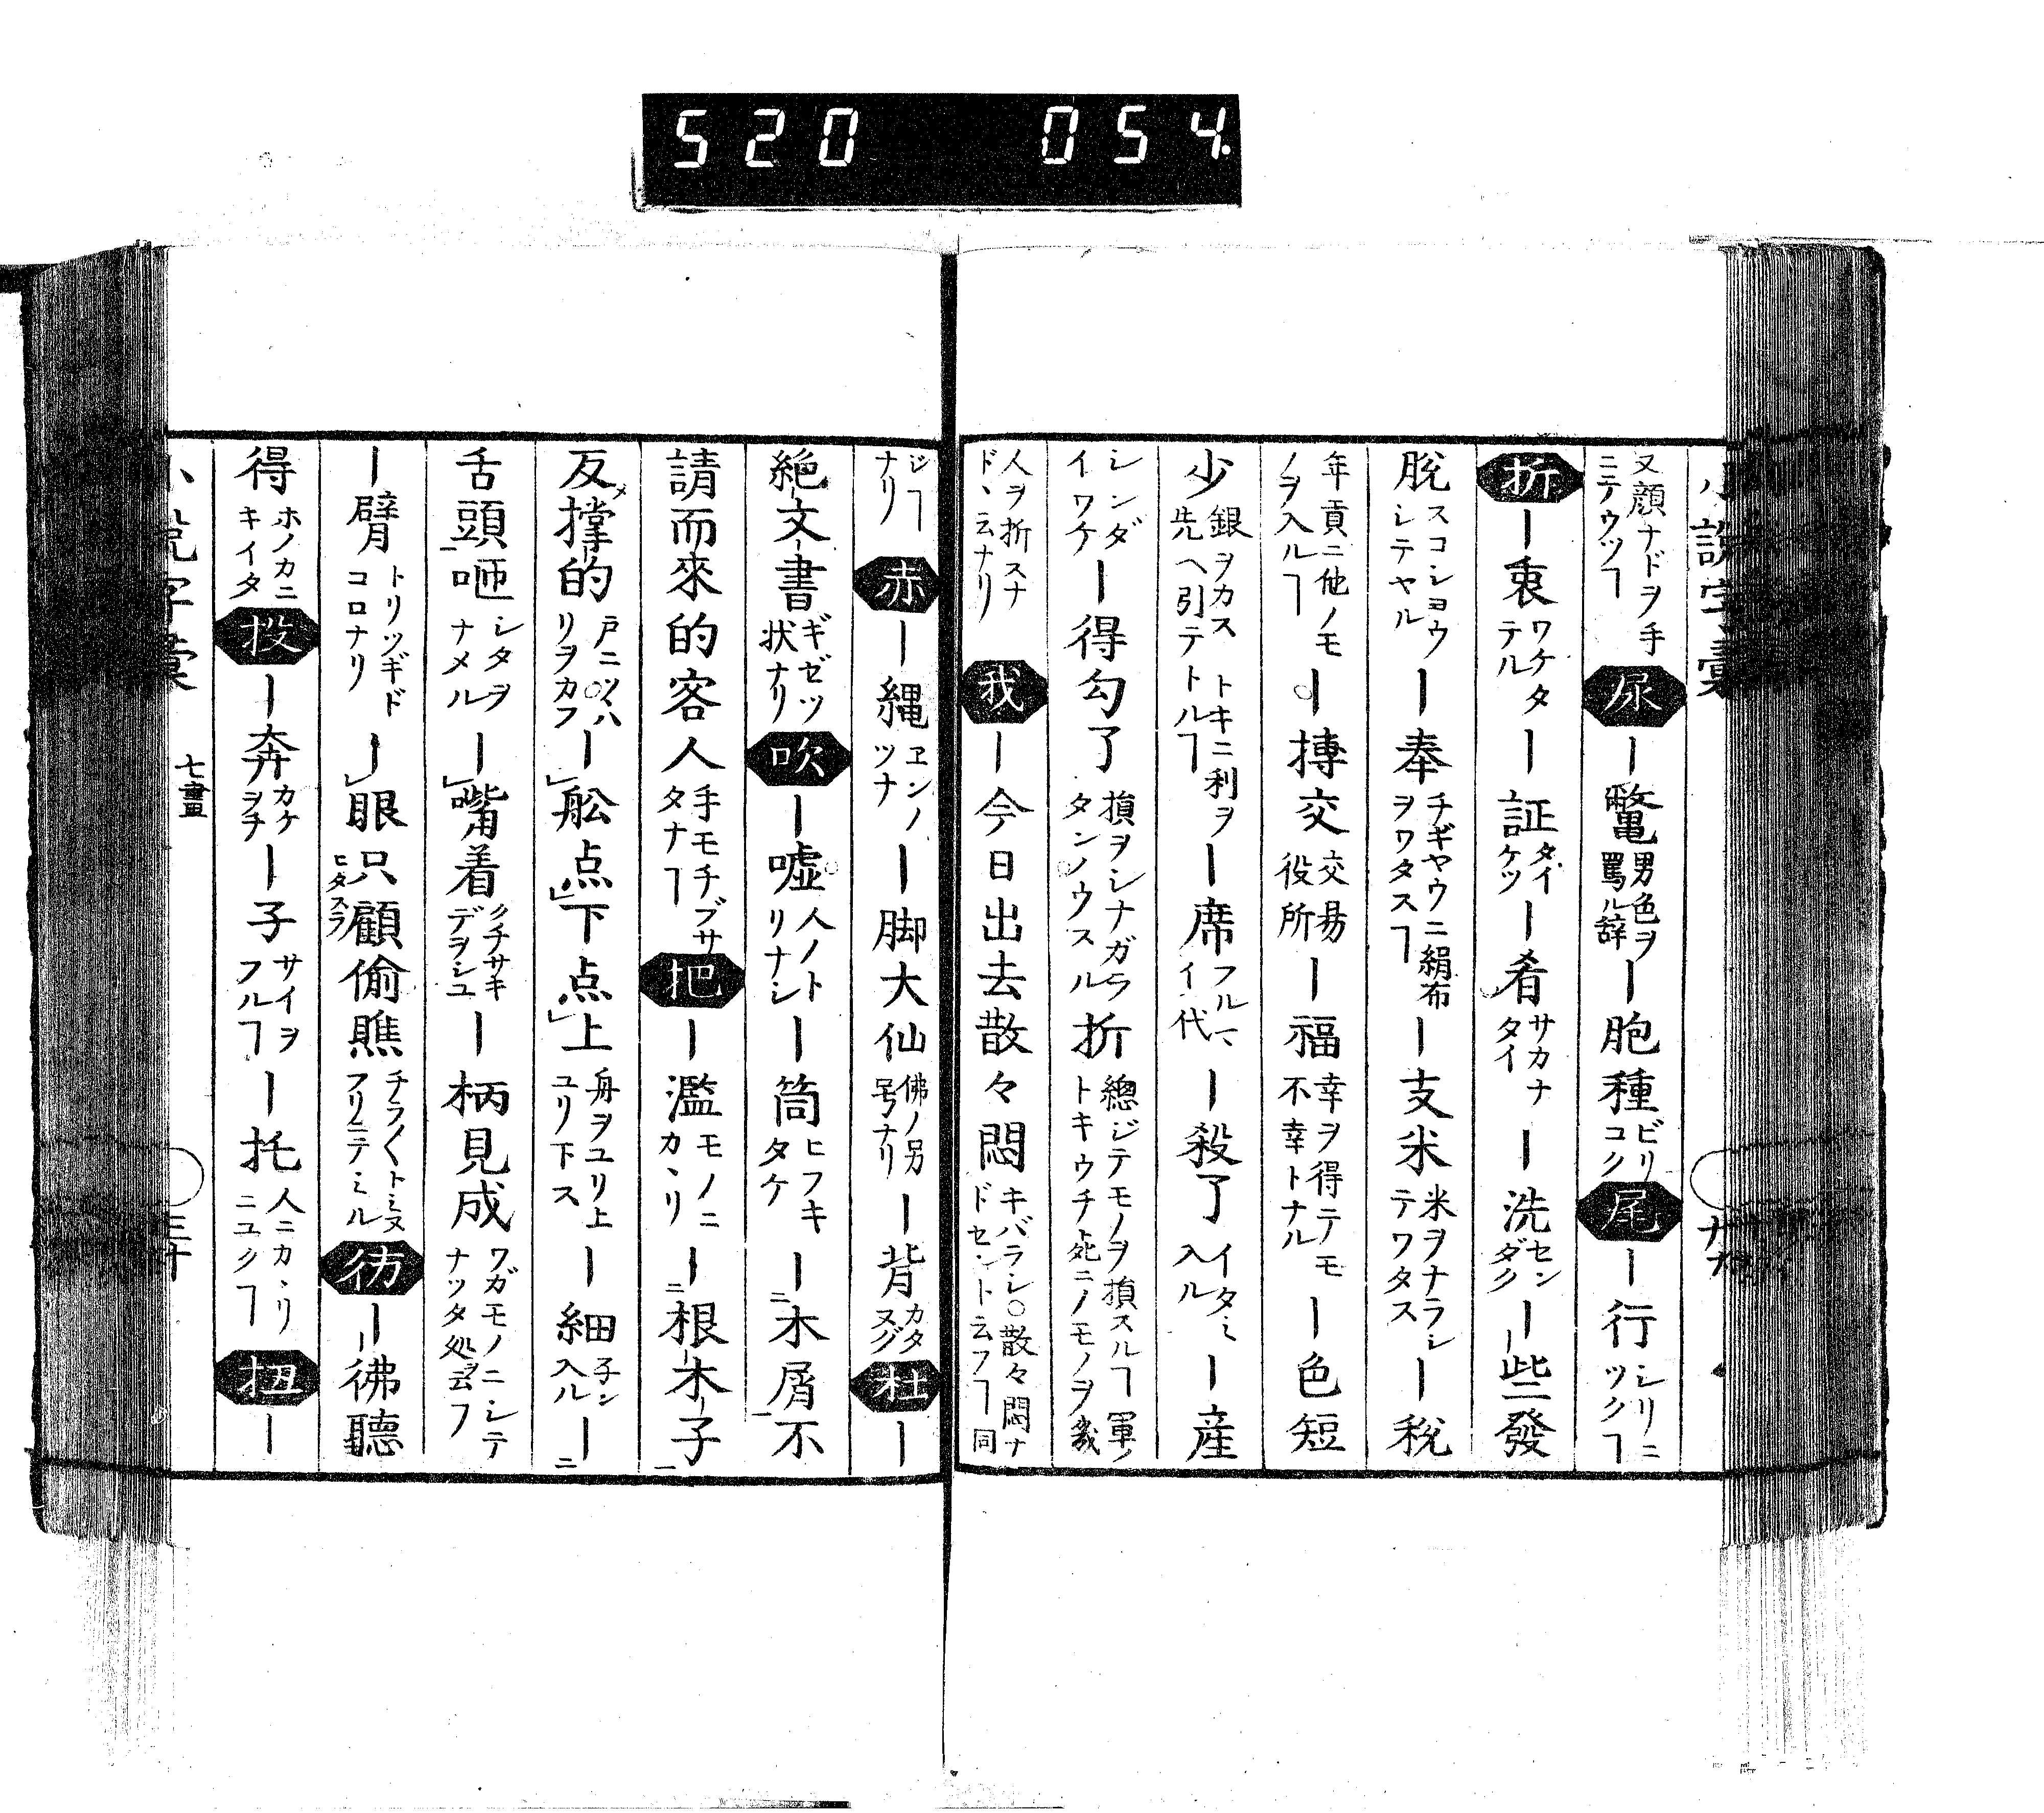 520 054.
小說字彙
又顔ナドヲ手ニテウツヿ 尿 ー鼈 男色ヲ罵ル辞 ー胞種 ビリコク 尾 ー行 シリニツクヿ
折 ー衷 ワケタテル ー証 タイケツ ー肴 サカナタイ ー洗 センダク ー些發
脫 スコシヨウシテヤル ー奉 チギヤウニ絹布ヲワタスヿ ー支米 米ヲナラシテワタス ー税
年貢ニ他ノモノヲ入ルヿ ー摶交 交易役所 ー福 幸ヲ得テモ不幸トナル ー色短
少 銀ヲカストキニ利ヲ先ヘ引テトルヿ ー席 フルマイ代 ー殺了 イタミ入ル ー産
シンダイワケ ー得勾了 損ヲシナガラタンノウスル 折 總ジテモノヲ損スルヿ軍ノトキウチ死ニノモノヲ幾
人ヲ折スナド、云ナリ 我 ー今日出去散々悶 キバラシ○散々悶ナドセント云フヿ同
ジヿナリ 赤 ー縄 ヱンノツナ ー脚大仙 佛ノ另号ナリ ー背 カタヌグ 杜 ー
絶文書 ギゼツ状ナリ 吹 ー嘘 人ノトリナシ ー筒 ヒフキタケ ー木屑不
請而來的客人 手モチブサタナヿ 把 ー濫 モノニカヽリ ー根木子
反撑的 戸ニツイハリヲカフ ー舩点下点上 舟ヲユリ上ユリ下ス ー細 子ン入ル ー
舌頭咂 シタヲナメル ー嘴着 クチサキデヲシユ ー柄見成 ワガモノニシテナツタ処ヲ云フ
ー臂 トリツギドコロナリ ー眼只顧偷瞧 ヒタスラ 彷 ー彿聽
得 ホノカニキイタ 投 ー奔 カケヲチ ー子 サイヲフルヿ ー托 人ニカヽリニユクヿ 扭 ー
小說字彙 七畫 三十